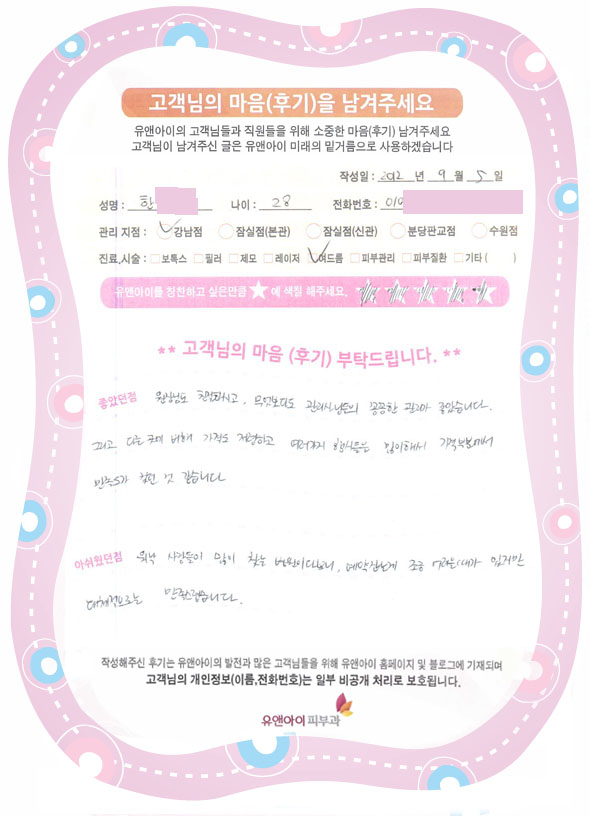 고객님의 마음(후기)을 남겨주세요
유앤아이의 고객님들과 직원들을 위해 소중한 마음(후기) 남겨주세요
고객님이 남겨주신 글은 유앤아이 미래의 밑거름으로 사용하겠습니다
작성일 : 2012 년 9 월 5 일
성명 : 한 나이 : 28 전화번호 : 010
관리 지점 : 강남점 잠실점(본관) 잠실점(신관) 분당판교점 수원점
진료,시술 : 보톡스 필러 제모 레이저 여드름 피부관리 피부질환 기타 ( )
유앤아이를 칭찬하고 싶은만큼 ★에 색칠 해주세요.
** 고객님의 마음 (후기) 부탁드립니다. **
좋았던점 원장님도 친절하시고, 무엇보다도 관리사님들의 꼼꼼한 관리가 좋았습니다.
그리고 다른 곳에 비해 가격도 저렴하고 여러가지 할인 많이해서 가격부분에서
만족도가 컸던 것 같습니다
아쉬웠던점 워낙 사람들이 많이 찾는 병원이다보니, 예약잡는게 조금 어려울때가 있지만
대체적으로는 만족스럽습니다.
작성해주신 후기는 유앤아이의 발전과 많은 고객님들을 위해 유앤아이 홈페이지 및 블로그에 기재되며
고객님의 개인정보(이름,전화번호)는 일부 비공개 처리로 보호됩니다.
유앤아이피부과